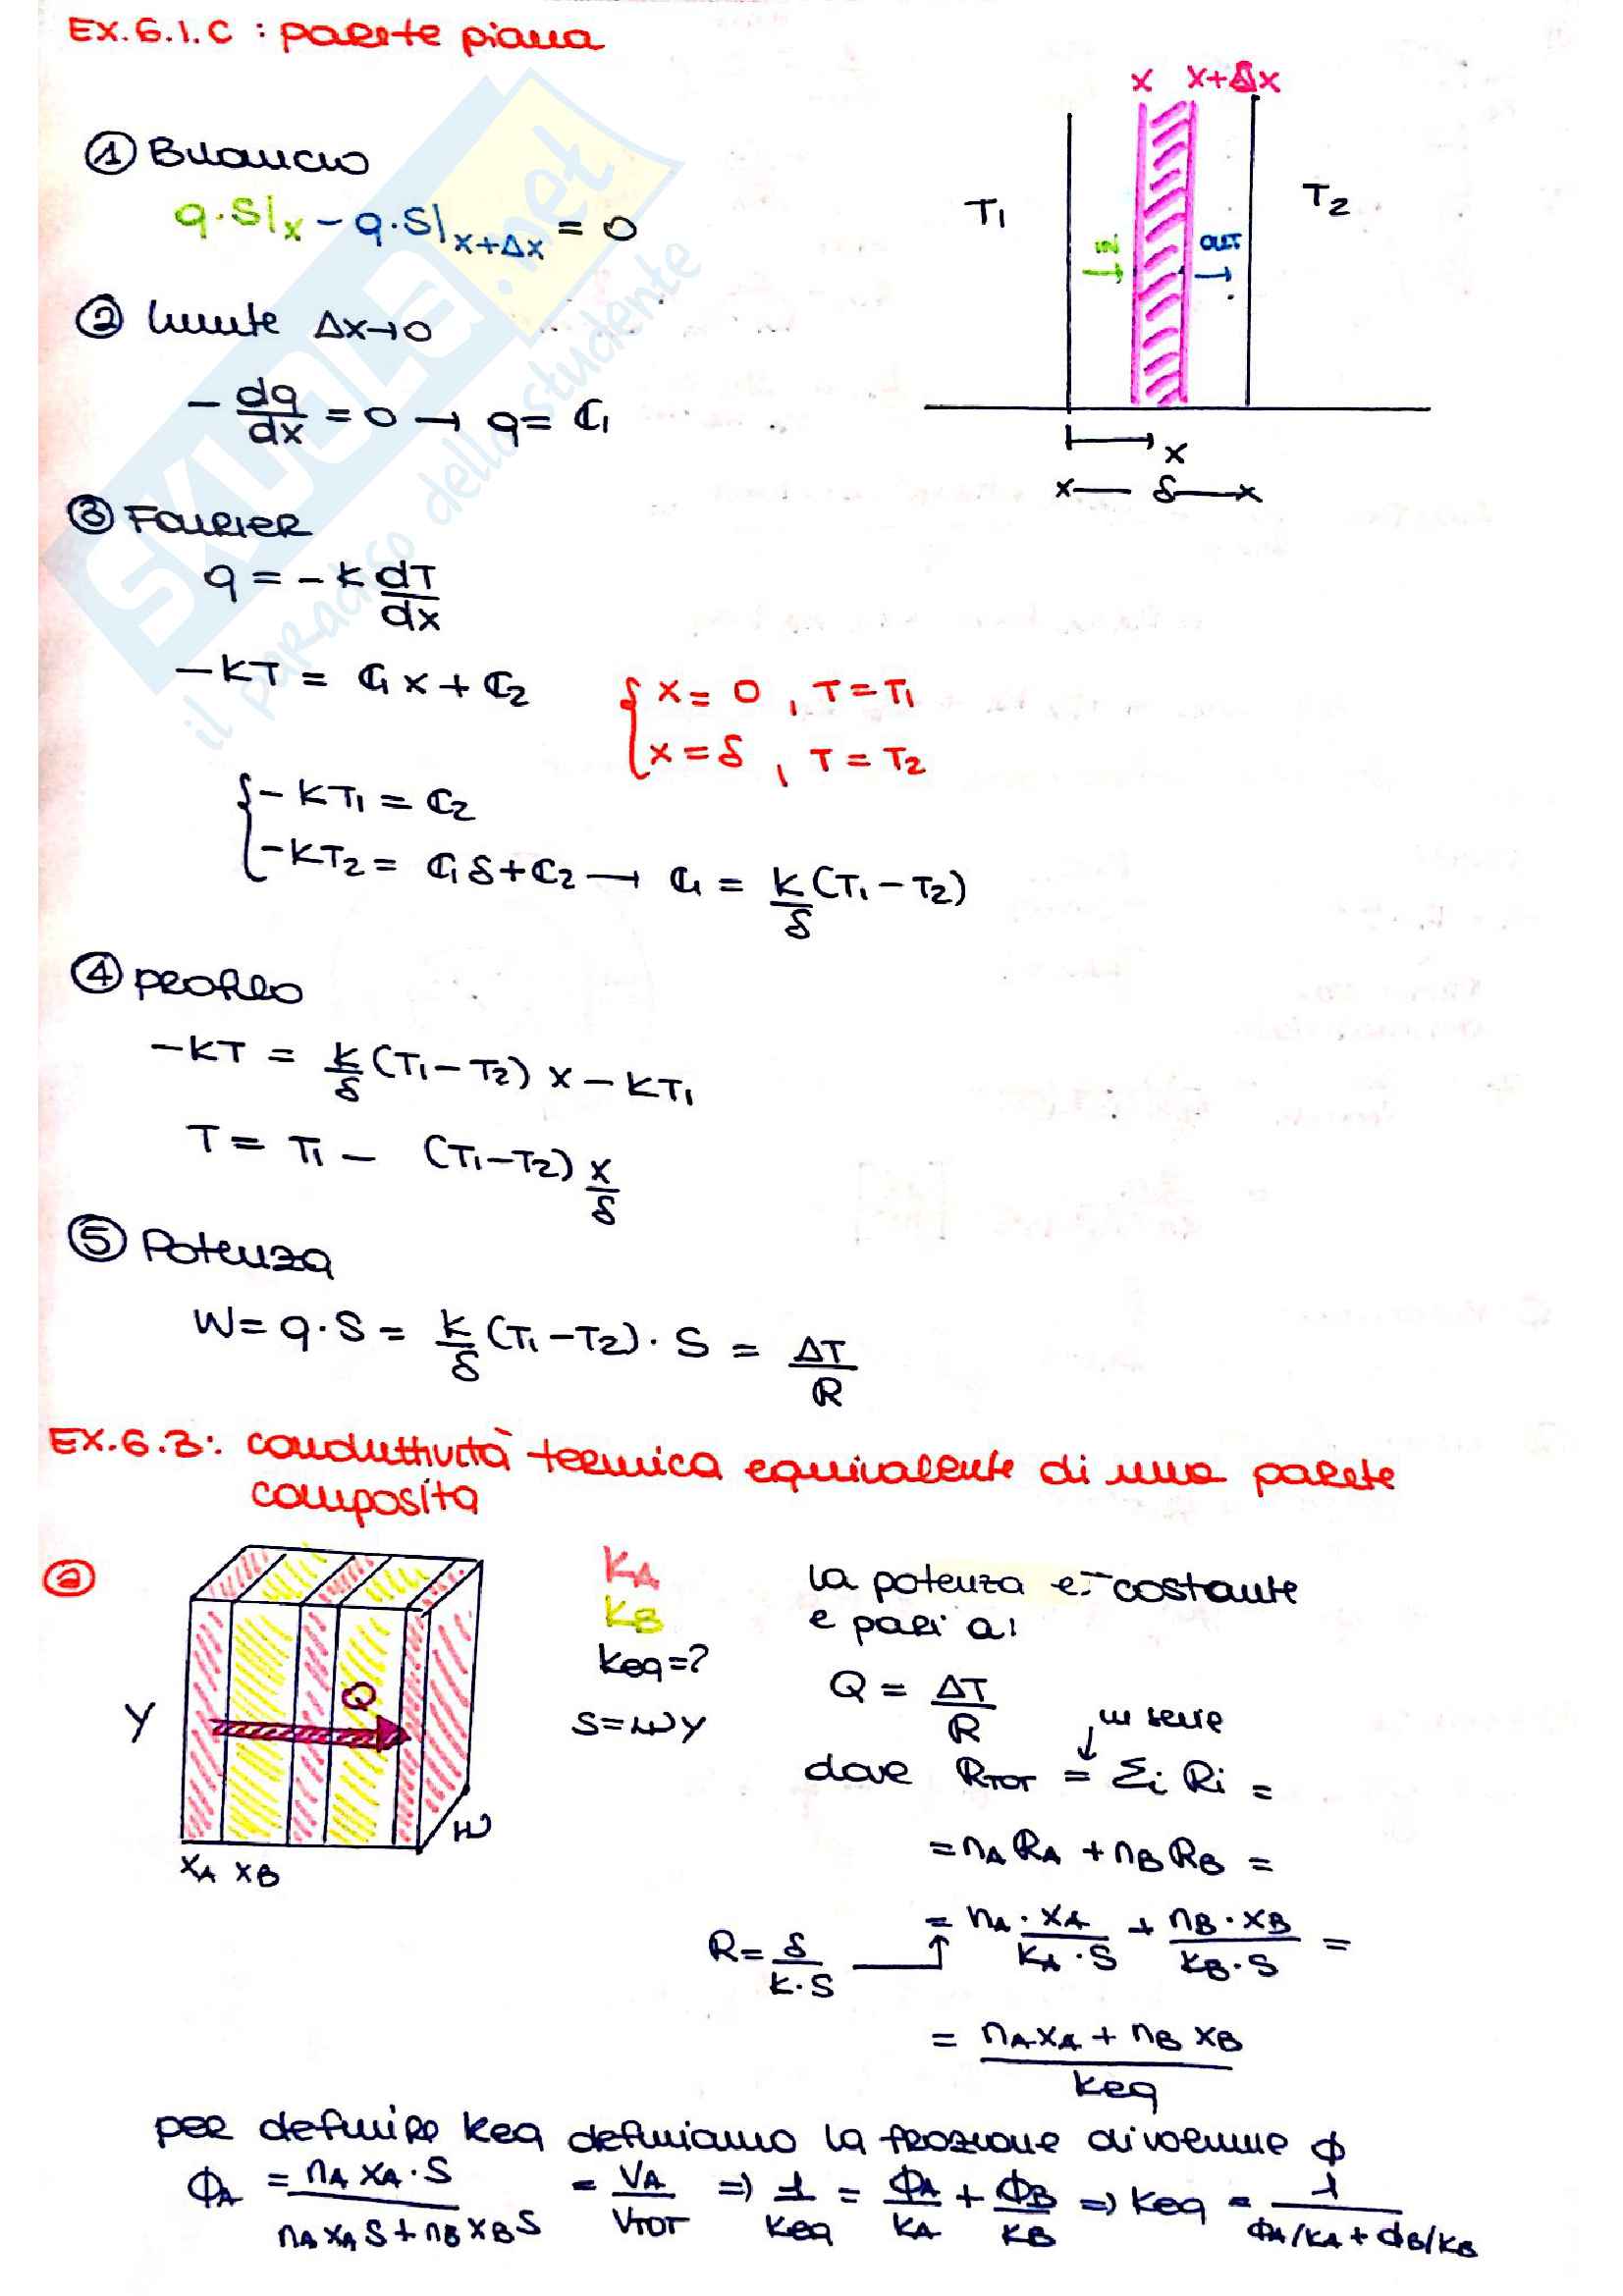 EX.6.1.C : parete piana
x x+Δx
① Bilancio
q·S|x - q·S|x+Δx = 0
T1 T2
IN OUT
② limite Δx→0
- dq/dx = 0 → q = C1
x
x— δ —x
③ Fourier
q = -k dT/dx
-kT = C1 x + C2
{ x = 0 , T = T1
x = δ , T = T2
{ -kT1 = C2
-kT2 = C1 δ + C2 → C1 = k/δ (T1 - T2)
④ profilo
-kT = k/δ (T1 - T2) x - kT1
T = T1 - (T1 - T2) x/δ
⑤ Potenza
W = q·S = k/δ (T1 - T2)·S = ΔT/R
EX.6.3: conduttività termica equivalente di una parete
composita
ⓐ
kA
kB
keq=?
S=WY
Y
Q
W
xA xB
la potenza è costante
e pari a:
Q = ΔT/R
in serie
dove RTOT = Σi Ri =
= nA RA + nB RB =
R = δ/k·S
= nA·xA/kA·S + nB·xB/kB·S =
= nA xA + nB xB/keq
per definire keq definiamo la frazione di volume ϕ
ϕA = nA xA·S/nA xA S + nB xB S = VA/VTOT ⇒ 1/keq = ϕA/kA + ϕB/kB ⇒ keq = 1/ϕA/kA + ϕB/kB
SKUOLA.net
il paradiso dello studente